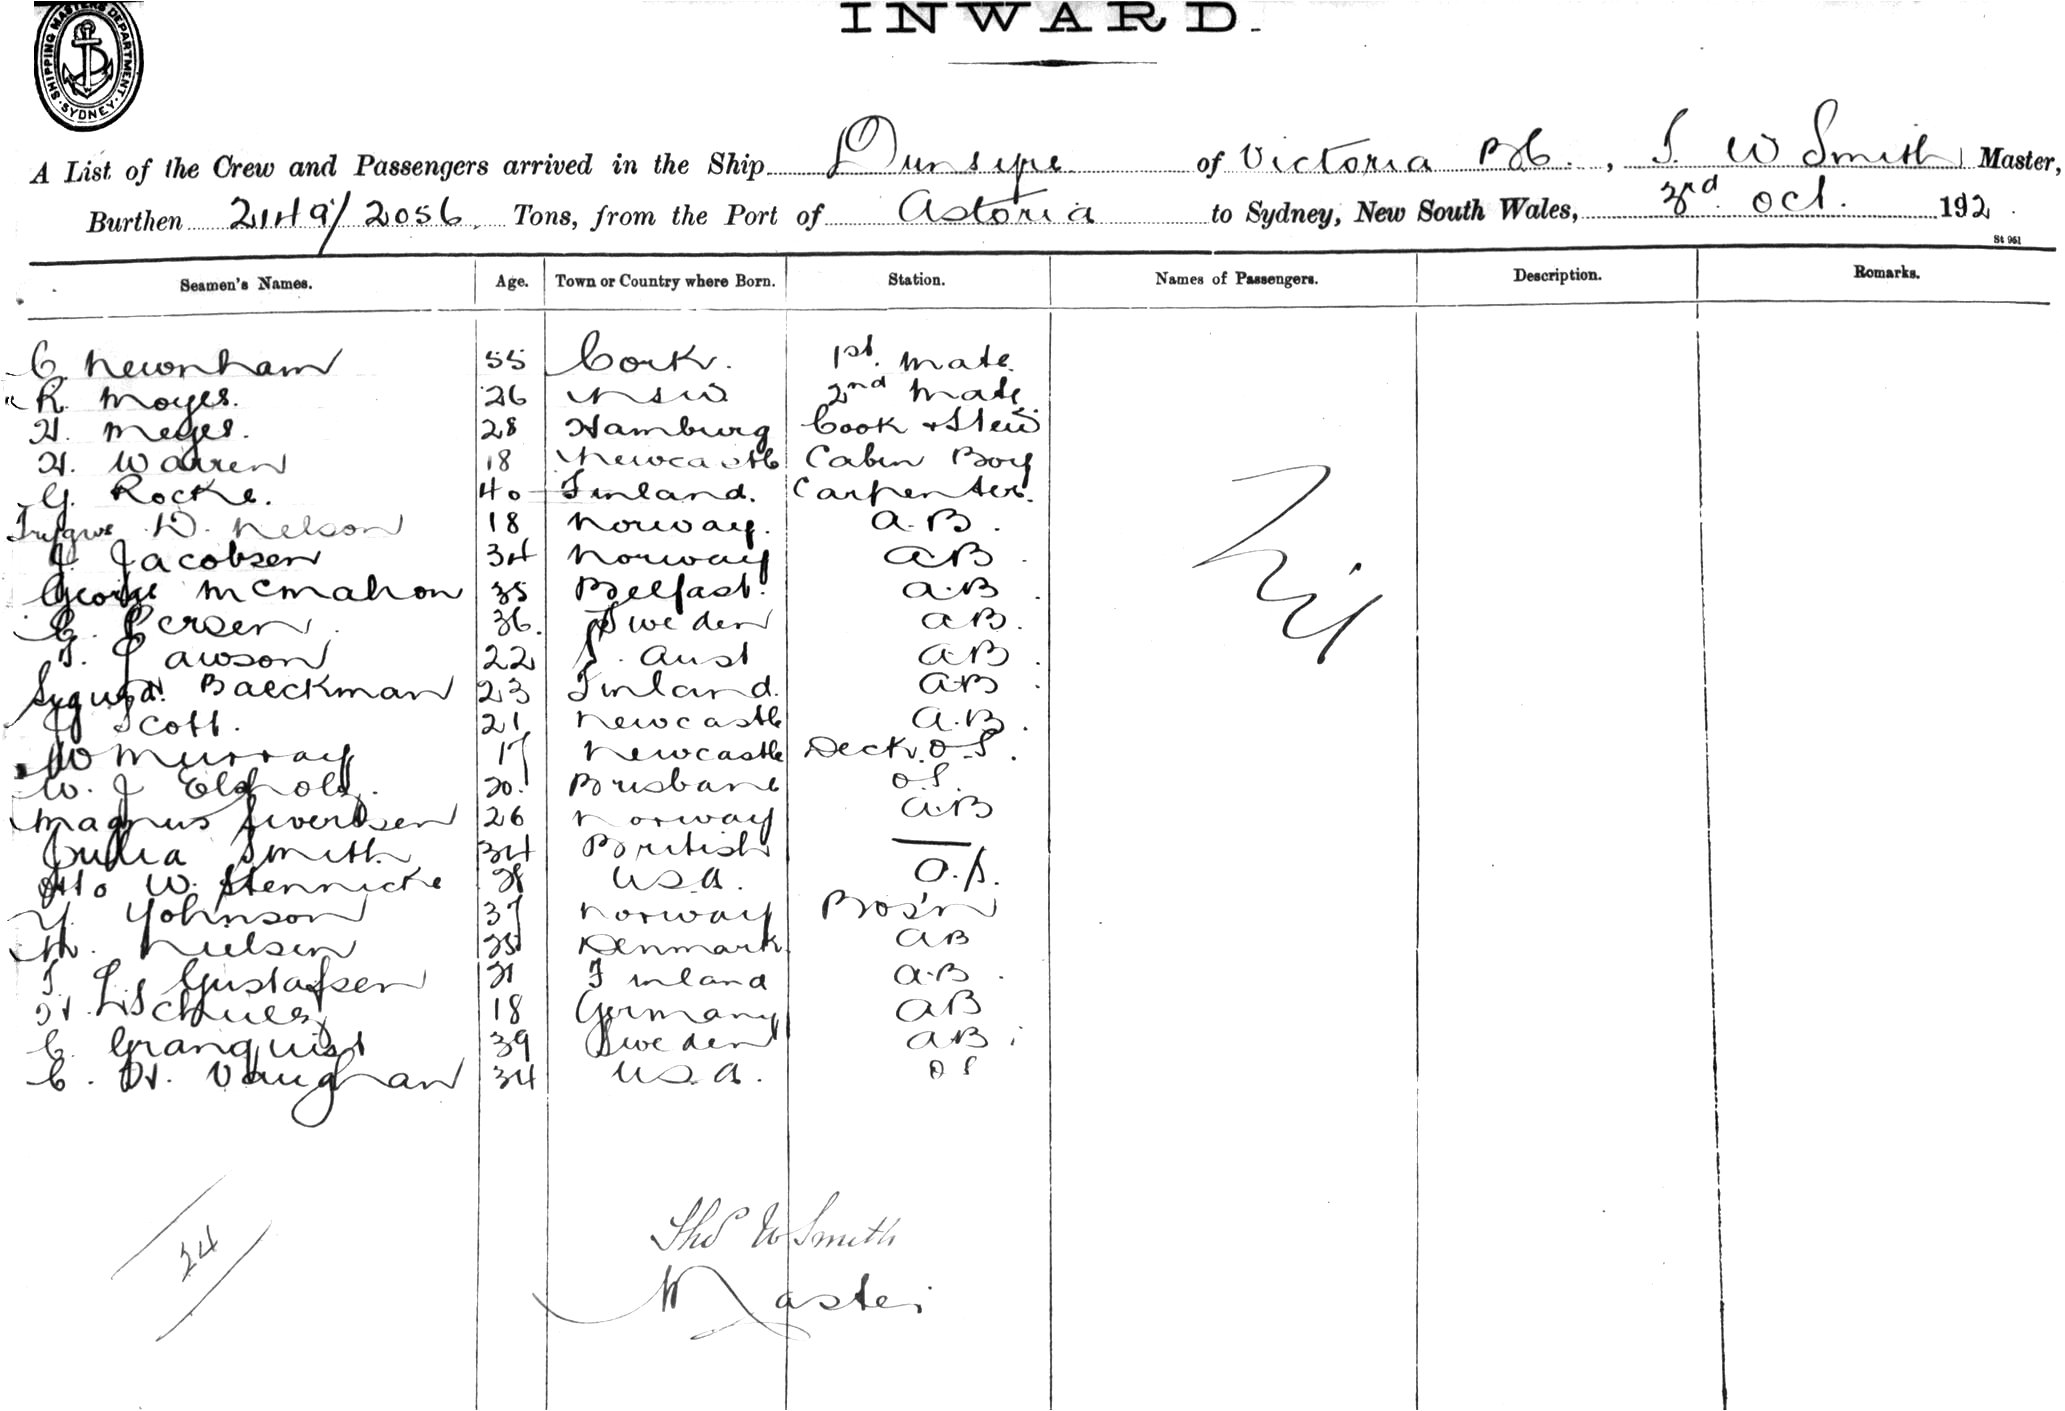 SHIPPING MASTERS DEPARTMENT SYDNEY
INWARD.
A List of the Crew and Passengers arrived in the Ship Dunsyre of Victoria B.C., T. W Smith Master,
Burthen 2149/2056 Tons, from the Port of Astoria to Sydney, New South Wales, 3rd Oct. 192
St 961
Seamen's Names. Age. Town or Country where Born. Station. Names of Passengers. Description. Remarks.
C. Newnham 55 Cork. 1st. Mate.
R. Moyes. 26 NSW 2nd Mate
H. Meyes. 28 Hamburg Cook & Stew
H. Warren 18 Newcastle Cabin Boy
G. Rocke. 40 Finland. Carpenter.
Trygve D. Nelson 18 Norway. A.B.
J. Jacobsen 34 Norway AB
George McMahon 35 Belfast. A.B
C. Persen 36. Sweden AB.
T. Lawson 22 S. Aust AB.
Sygurd. Baeckman 23 Finland. AB
J Scott. 21 Newcastle A.B.
W Murray 17 Newcastle Deck. O.S.
W. J 20. Brisbane OS.
Magnus Sivertsen 26 Norway A.B
Julia Smith 34 British
Otto W. Hennicke 28 USA. O.S.
Y. Johnson 37 Norway Bos'n
M. Nielsen 25 Denmark AB
T L Gustafsen 21 Finland A.B.
H. 18 Germany AB
C. Granquist 39 Sweden AB
C. H. Vaughan 34 USA. OS
Nil
24
Thos W Smith
Master